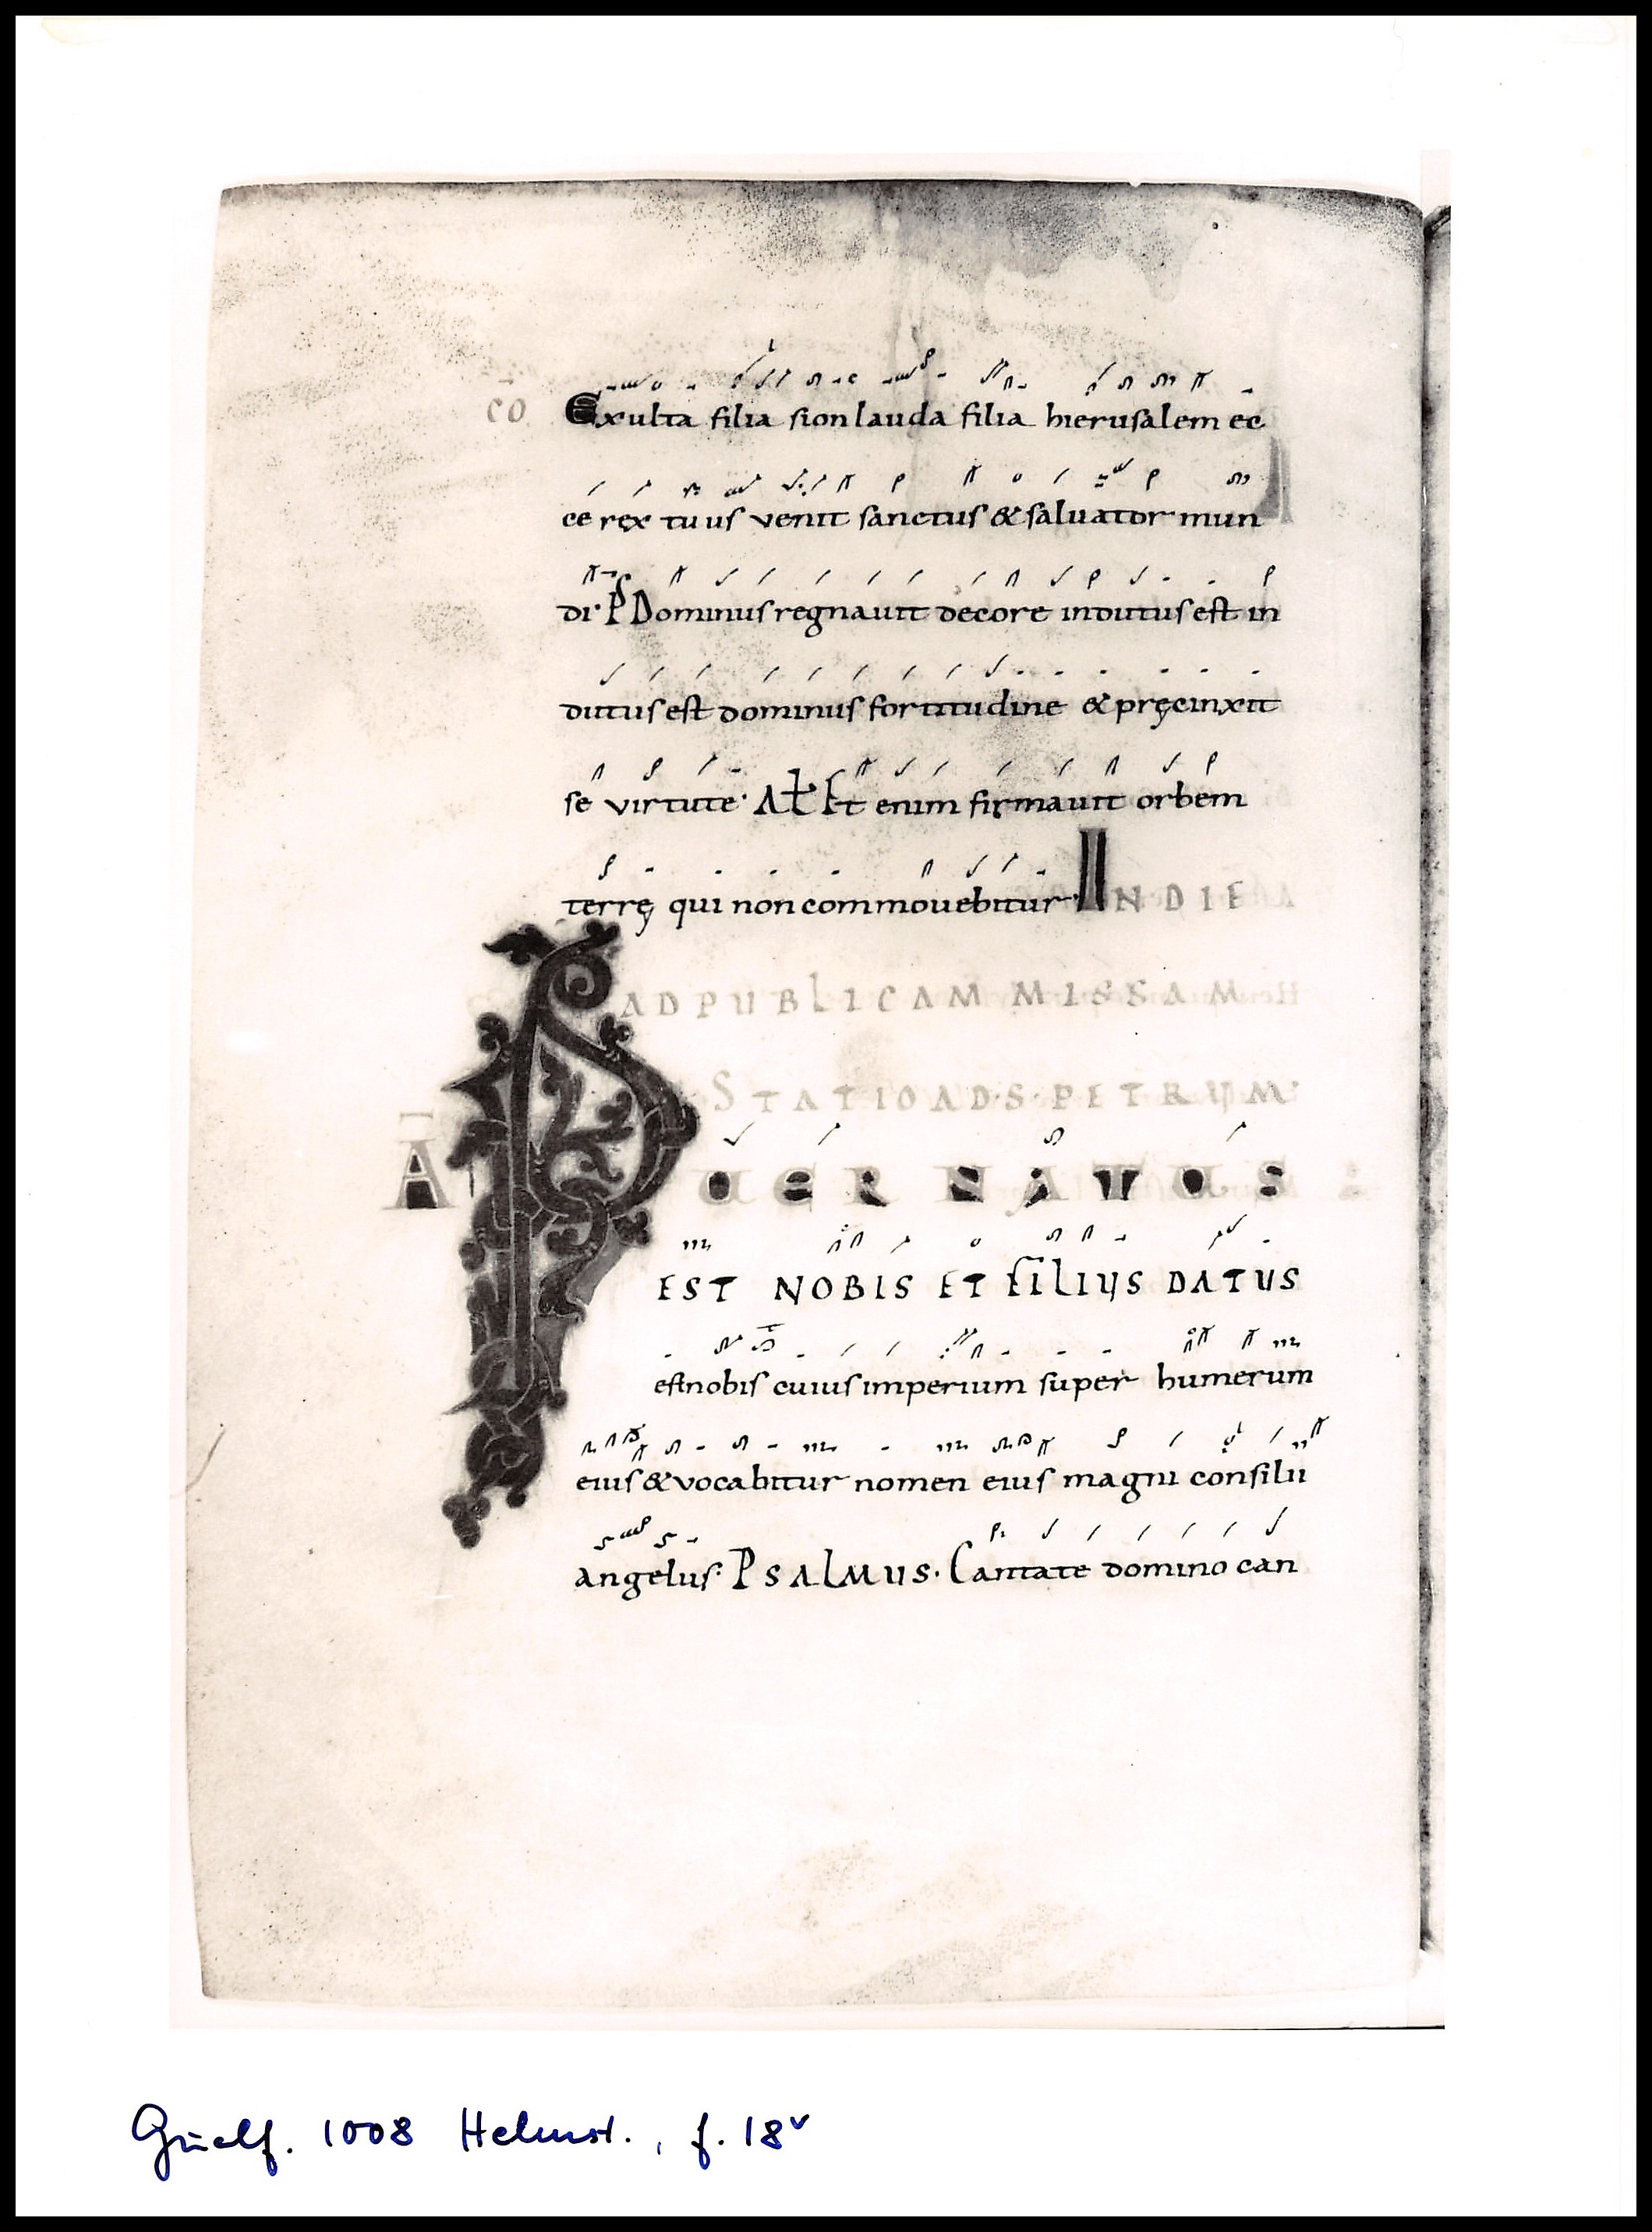 CO Exulta filia sion lauda filia hierusalem ec
ce rex tuus venit sanctus & saluator mun
di· P Dominus regnauit decore indutus est in
dutus est dominus fortitudine & pręcinxit
se virtute· Al Et enim firmauit orbem
terrę qui non commouebitur· IN DIE
AD PUBLICAM MISSAM
STATIO AD·S·PETRUM·
A PUER NATUS
EST NOBIS ET FILIUS DATUS
est nobis cuius imperium super humerum
eius & vocabitur nomen eius magni consilii
angelus· PSALMUS· Cantate domino can
Guelf. 1008 Helmst., f. 18v